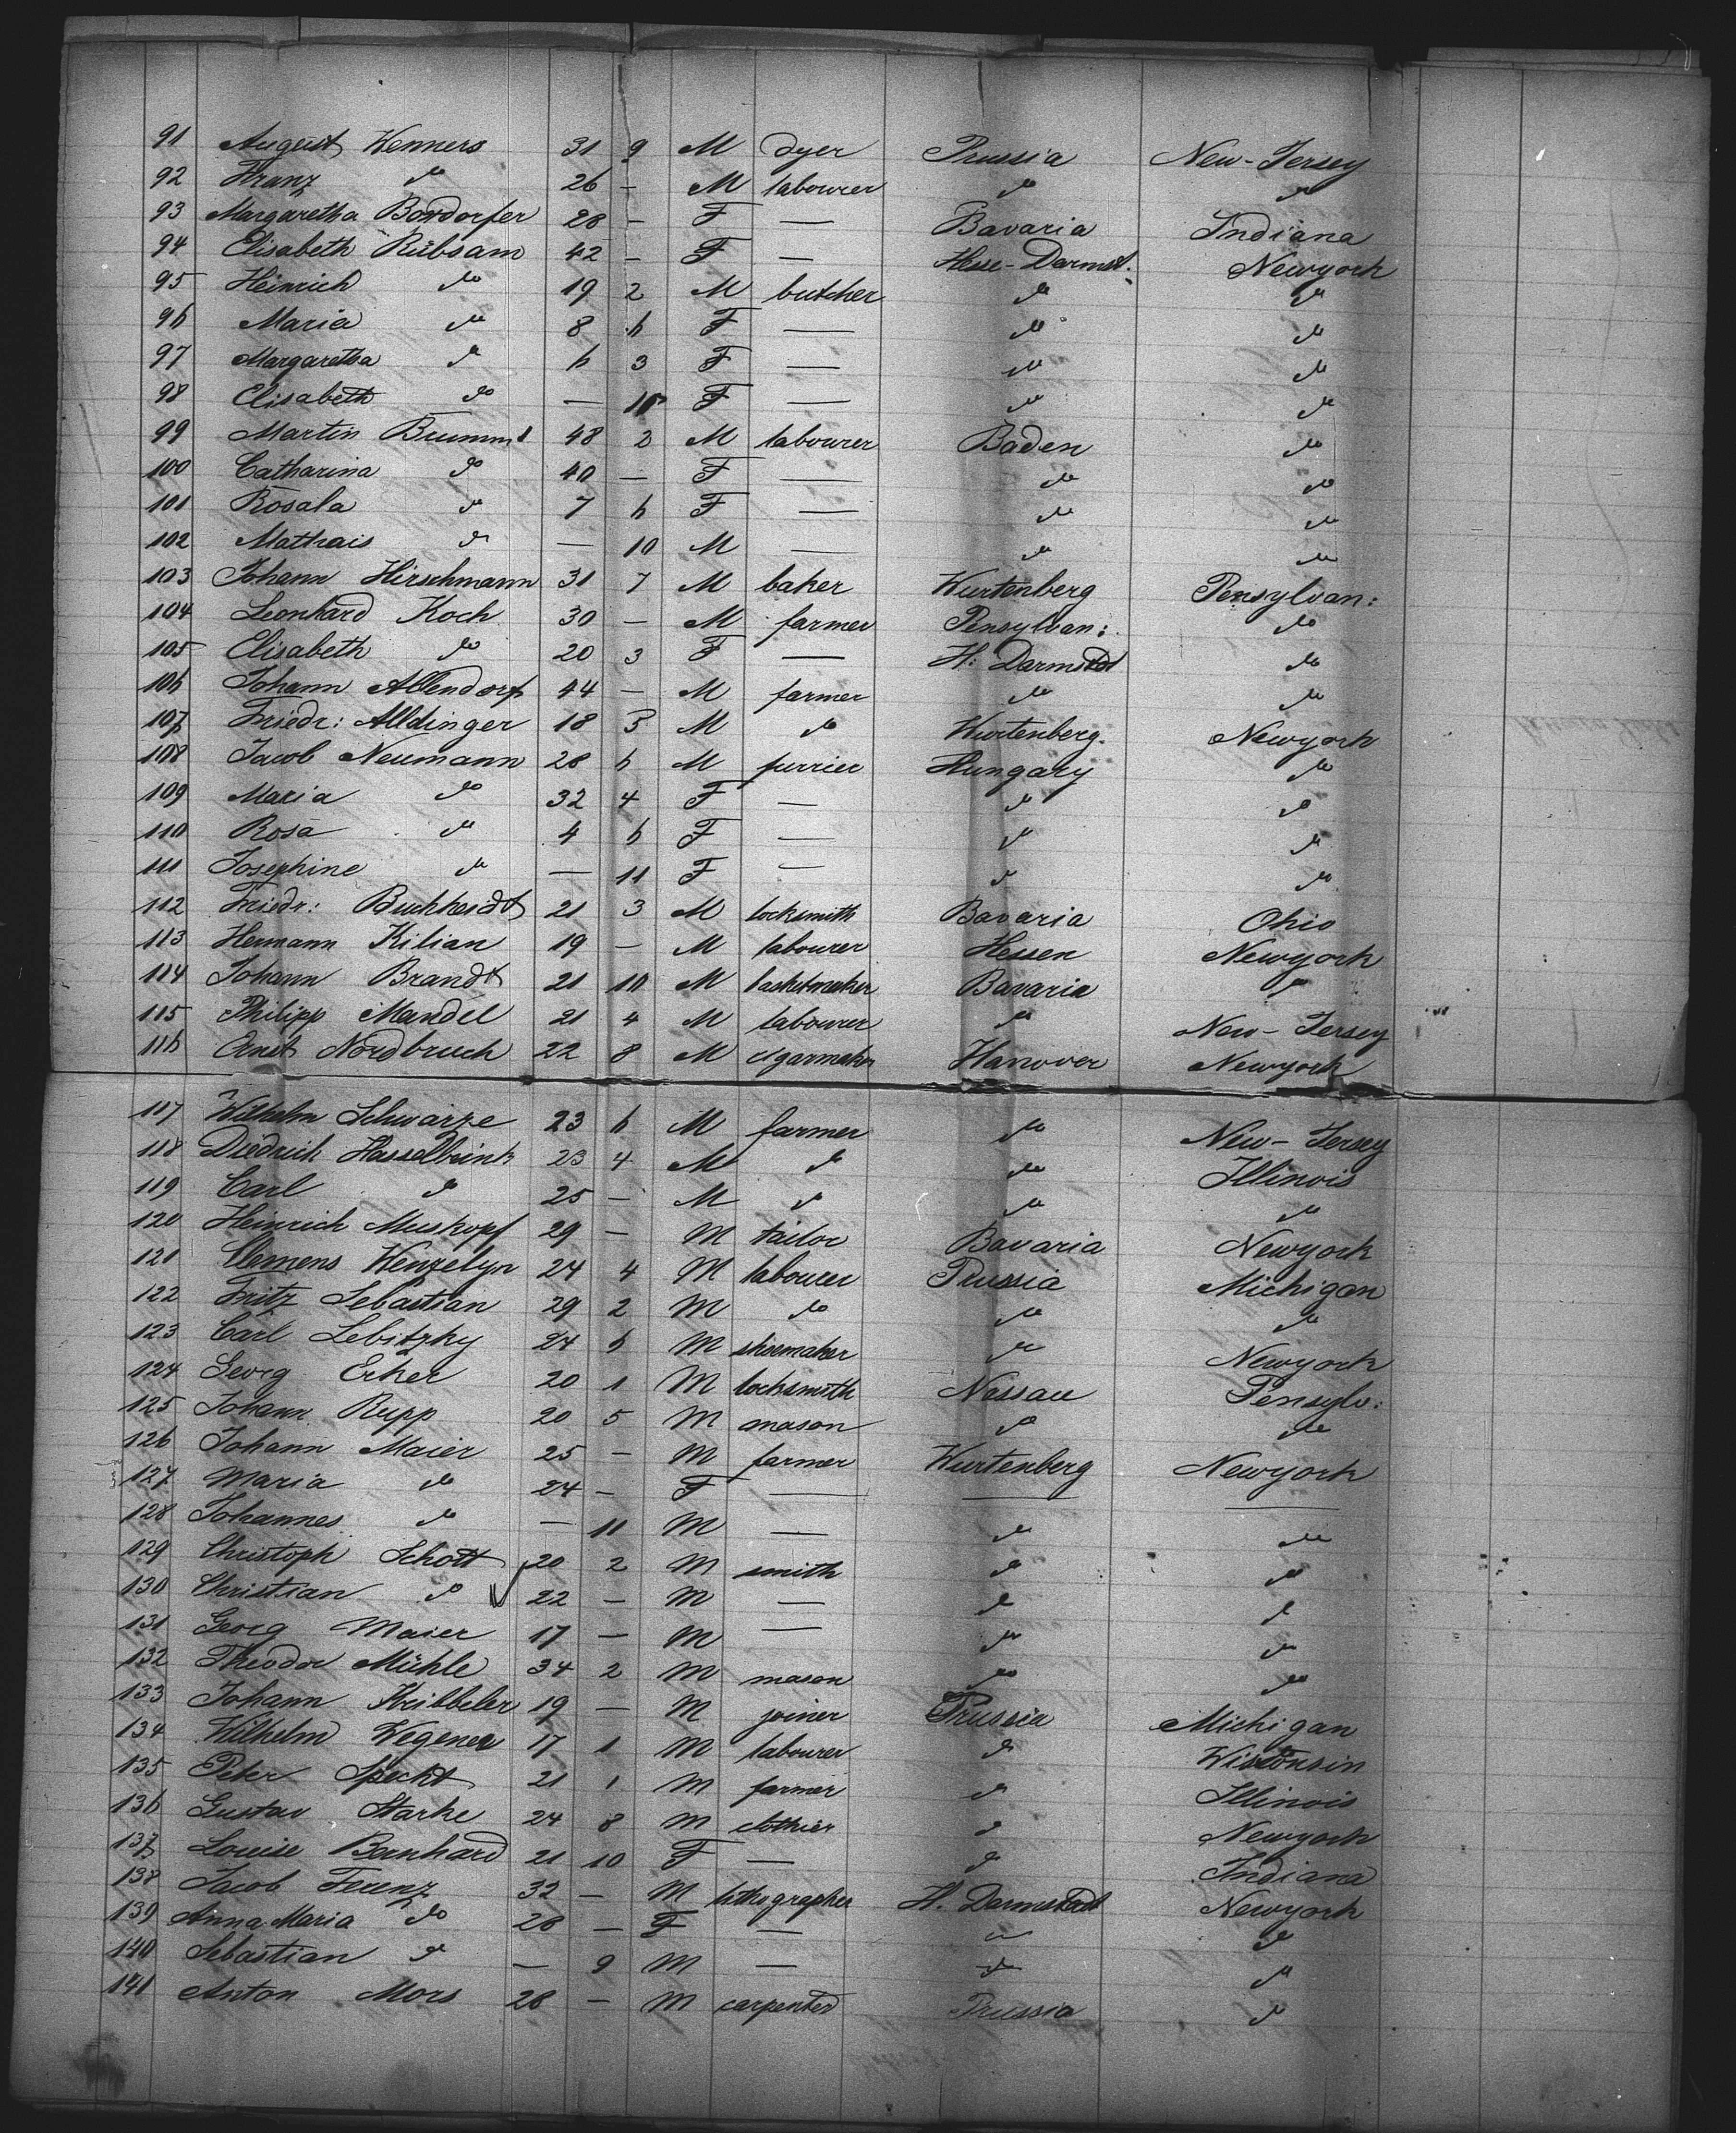 91 August Wenners 31 9 M dyer Prussia New-Jersey
92 Franz do 26 — M labourer do do
93 Margaretha Bordorfer 28 — F — Bavaria Indiana
94 Elisabeth Rübsam 42 — F — Hesse-Darmst. Newyork
95 Heinrich do 19 2 M butcher do do
96 Maria do 8 6 F — do do
97 Margaretha do 6 3 F — do do
98 Elisabeth do — 10 F — do do
99 Martin Brummt 48 2 M labourer Baden do
100 Catharina do 40 — F — do do
101 Rosala do 7 6 F — do do
102 Mathais do — 10 M — do do
103 Johann Hirschmann 31 7 M baker Wurtenberg Pensylvan:
104 Leonhard Koch 30 — M farmer Pensylvan: do
105 Elisabeth do 20 3 F — H: Darmstdt do
106 Johann Allendorf 44 — M farmer do do
107 Friedr: Alldinger 18 5 M do Wurtenberg. Newyork
108 Jacob Neumann 28 6 M furrier Hungary do
109 Maria do 32 4 F — do do
110 Rosa do 4 6 F — do do
111 Josephine do — 11 F — do do
112 Friedr: Buchheidt 21 3 M locksmith Bavaria Ohio
113 Hermann Kilian 19 — M labourer Hessen Newyork
114 Johann Brandt 21 10 M basketmaker Bavaria do
115 Philipp Mandel 21 4 M labourer do New-Jersey
116 Ernst Nordbruch 22 8 M cigarmaker Hanover Newyork
117 Wilhelm Schwarze 23 6 M farmer do New-Jersey
118 Diedrich Hasselbrink 23 4 M do do Illinois
119 Carl do 25 — M do do do
120 Heinrich Muskopf 29 — M tailor Bavaria Newyork
121 Clemens Wenzelyn 24 4 M labourer Prussia Michigan
122 Fritz Sebastian 29 2 M do do do
123 Carl Lebitzky 24 6 M shoemaker do Newyork
124 Georg Erker 20 1 M locksmith Nassau Pensylv:
125 Johann Rupp 20 5 M mason do do
126 Johann Maier 25 — M farmer Wurtenberg Newyork
127 Maria do 24 — F — — —
128 Johannes do — 11 M — do do
129 Christoph Schott 20 2 M smith do do
130 Christian do 22 — M — do do
131 Georg Maier 17 — M — do do
132 Theodor Mühle 34 2 M mason do do
133 Johann Kribbeler 19 — M joiner Prussia Michigan
134 Wilhelm Wegener 17 1 M labourer do Wisconsin
135 Peter Specht 21 1 M farmer do Illinois
136 Gustav Starke 24 8 M clothier do Newyork
137 Louise Bernhard 21 10 F — do Indiana
138 Jacob Ferenz 32 — M lithographer H. Darmstadt Newyork
139 Anna Maria do 28 — F — do do
140 Sebastian do — 9 M — do do
141 Anton Mors 28 — M carpenter Prussia do